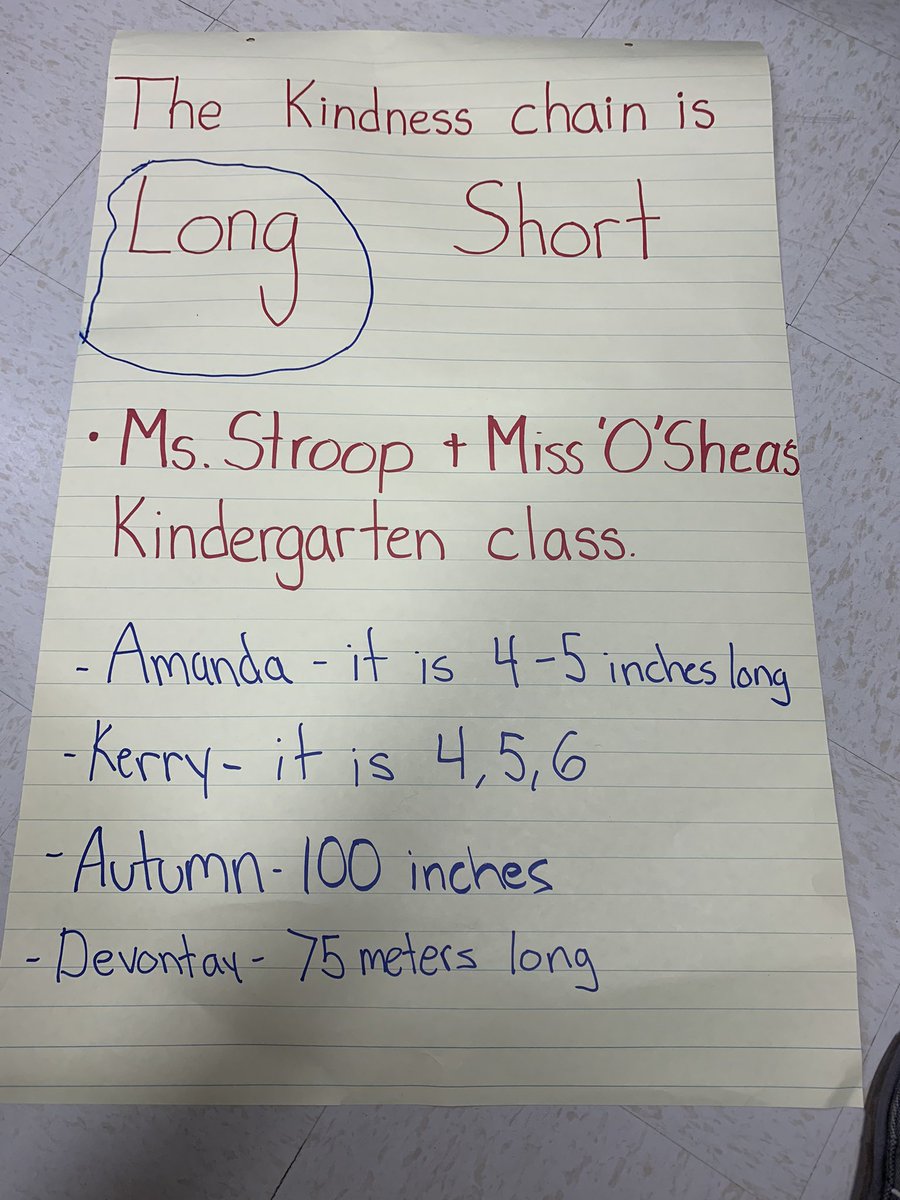 The Kindness chain is
Long Short
• Ms. Stroop + Miss 'O'Sheas
Kindergarten class.
- Amanda - it is 4-5 inches long
- Kerry - it is 4,5,6
- Autumn - 100 inches
- Devontay - 75 meters long